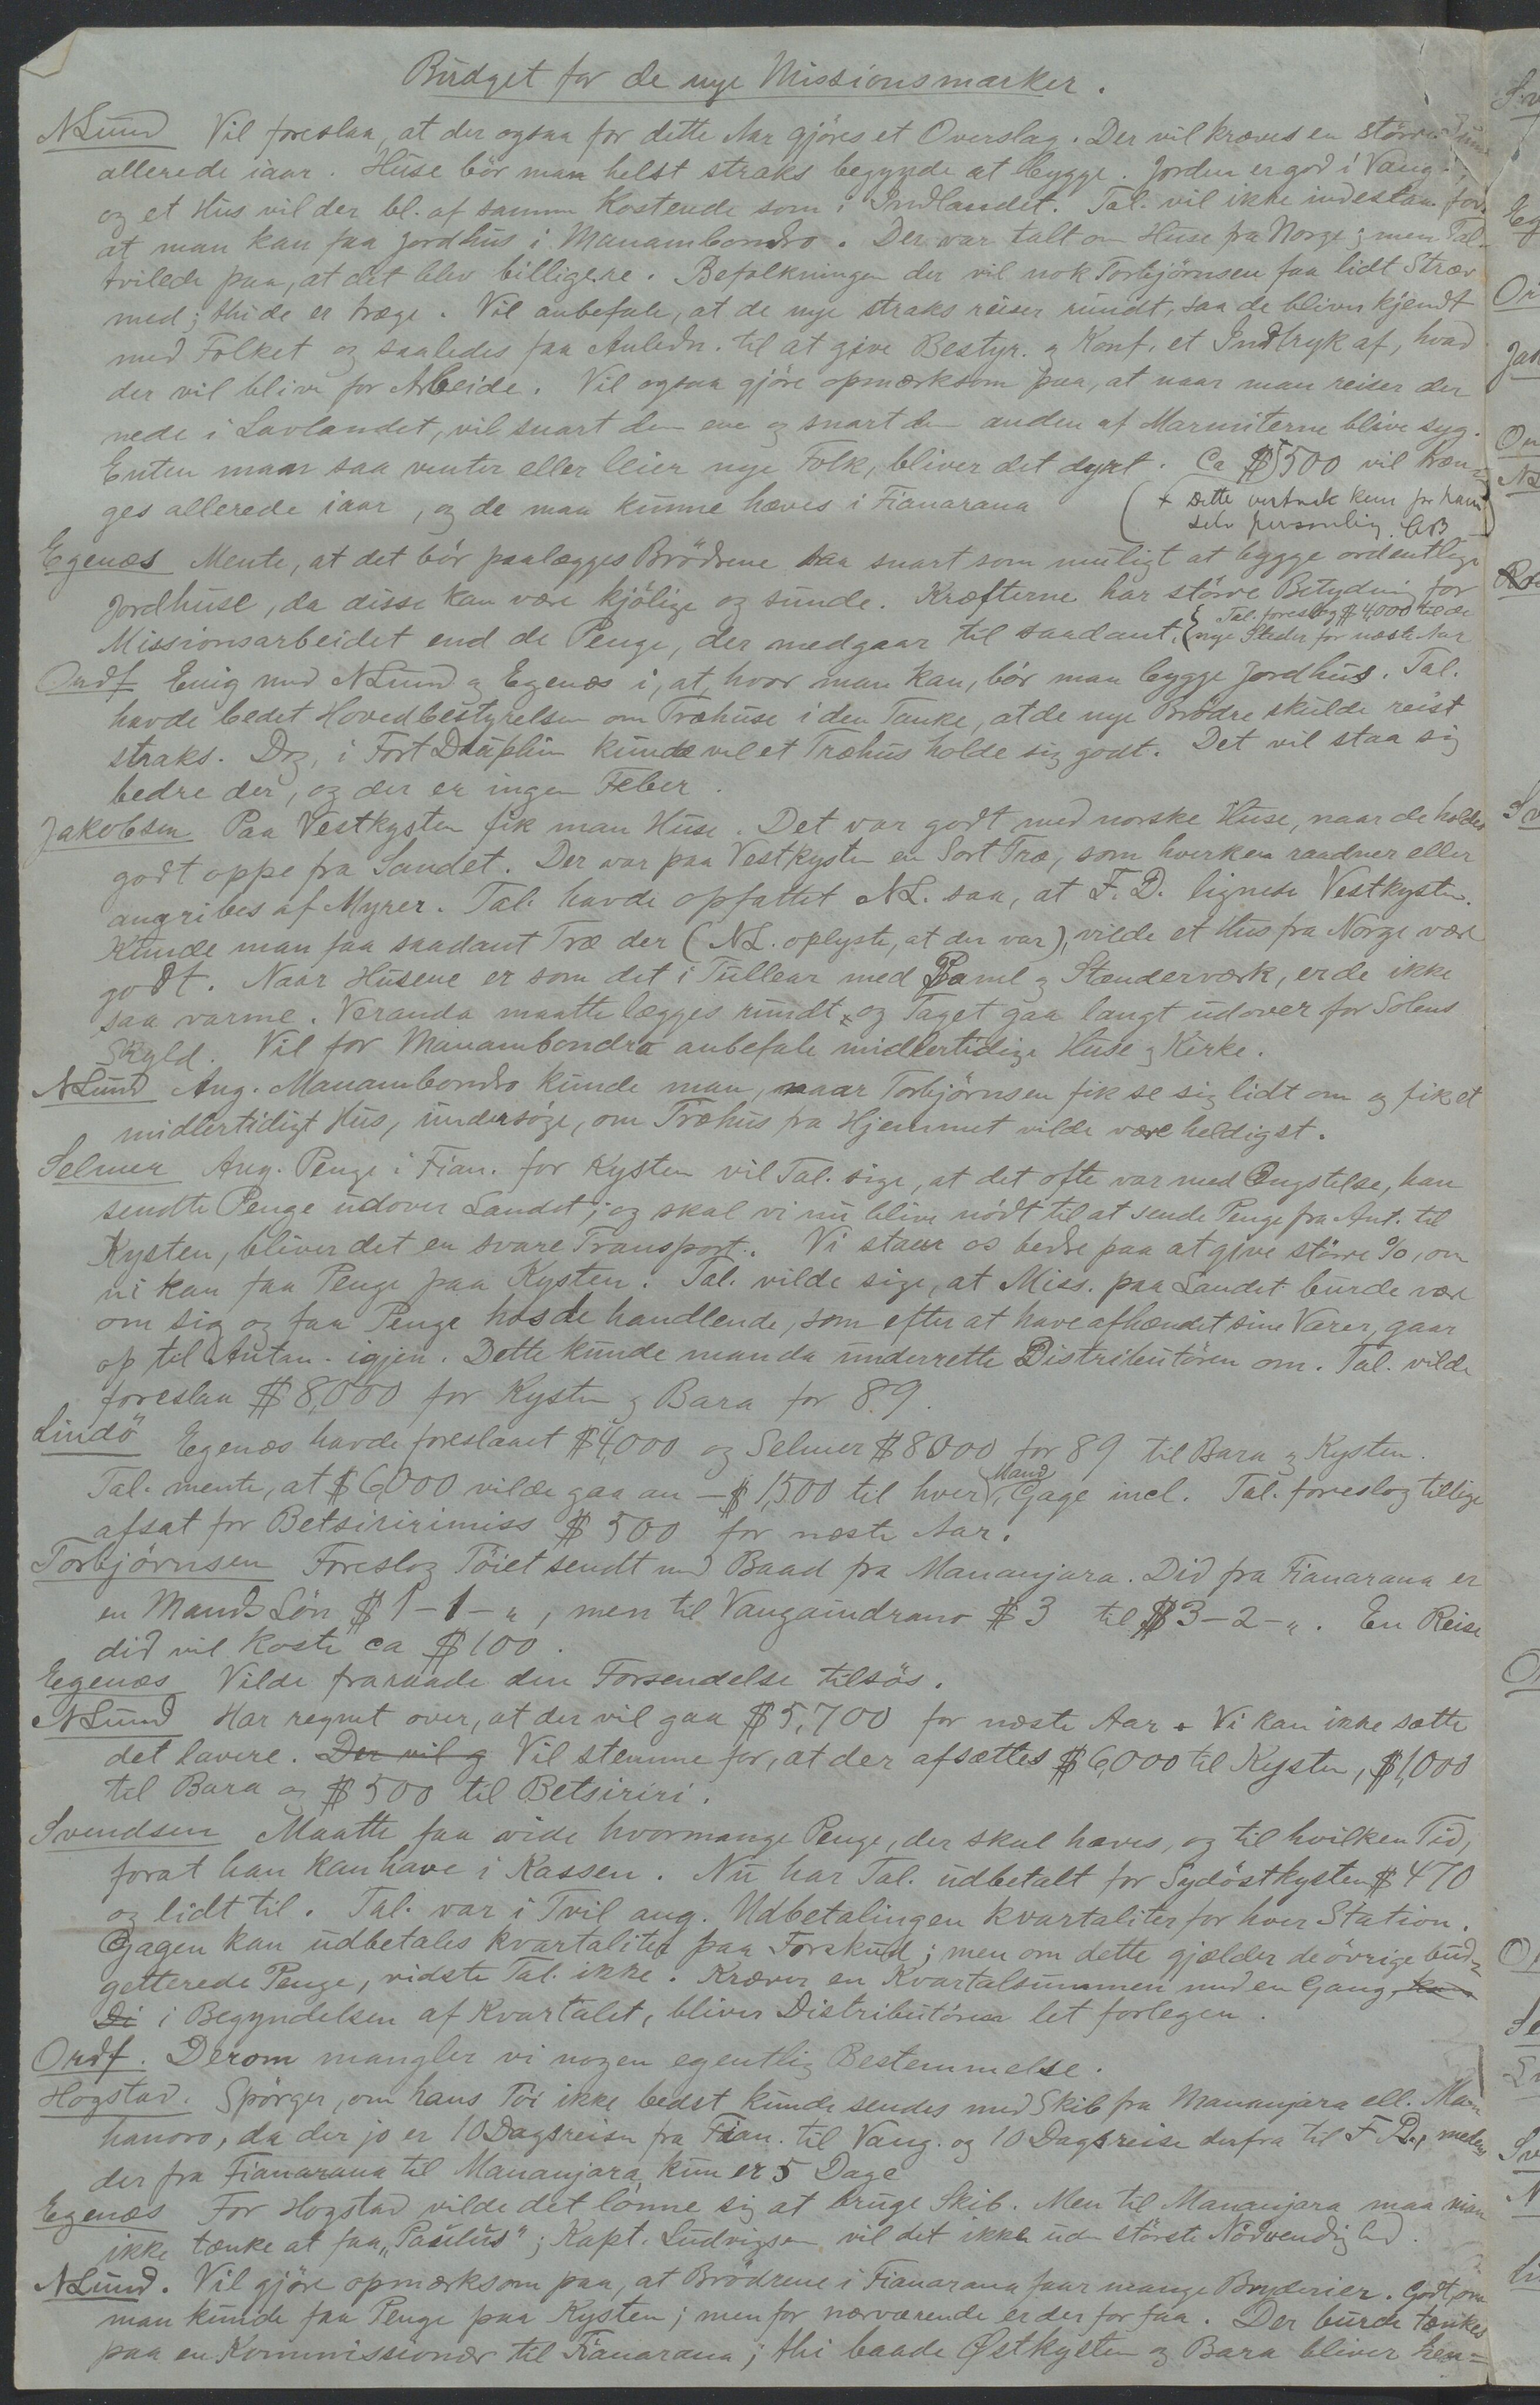 Budget for de nye Missionsmarker.
NLund Vil foreslaa, at der ogsaa for dette Aar gjöres et Overslag. Der vil kræves en större Sum
allerede iaar. Huse bör man helst straks begynde at bygge. Jorden er god i Vang.,
og et Hus vil der bl. af samme Kostende som i Indlandet. Tal. vil ikke indestaa for,
at man kan faa Jordhus i Manambondro. Der var talt om Huse fra Norge; men Tal.
tvilede paa, at det blev billigere. Befolkningen der vil nok Torbjörnsen faa lidt Stræv
med; thi de er træge. Vil anbefale, at de nye straks reiser rundt, saa de bliver kjendt
med Folket og saaledes faa Anledn. til at give Bestyr. og Konf. et Indtryk af, hvad
der vil blive for Arbeide. Vil ogsaa gjöre opmærksom paa, at naar man reiser der
nede i Lavlandet, vil snart den ene og snart den anden af Marmiterne blive syg.
Enten man saa venter eller leier nye Folk, bliver det dyrt. Ca $ 500 vil træn-
ges allerede iaar, og de maa kunne hæves i Fianarana
(+ Dette kun for ham
selv personlig. CB)
Egenæs Mente, at det bör paalægges Brödrene saa snart som muligt at bygge ordentlige
Jordhuse, da disse kan være kjölige og sunde. Kræfterne har större Betydning for
Missionsarbeidet end de Penge, der medgaar til saadant. { Tal. foreslog $ 4,000 til de
nye Steder for næste Aar
Ordf Enig med NLund og Egenæs i, at, hvor man kan, bör man bygge Jordhus. Tal.
havde bedet Hovedbestyrelsen om Træhuse i den Tanke, at de nye Brödre skulde reist
straks. Dog, i Fort Dauphin kunde vel et Træhus holde sig godt. Det vil staa sig
bedre der, og der er ingen Feber.
Jakobsen Paa Vestkysten fik man Huse. Det var godt med norske Huse, naar de holdes
godt oppe fra Sandet. Der var paa Vestkysten en Sort Træ, som hverken raadner eller
angribes af Myrer. Tal. havde opfattet NL. saa, at F. D. lignede Vestkysten.
Kunde man faa saadant Træ der (NL. oplyste, at der var), vilde et Hus fra Norge være
godt. Naar Husene er som det i Tullear med Panel og Stænderværk, er de ikke
saa varme. Veranda maatte lægges rundt og Taget gaa langt udover for Solens
Skyld. Vil for Manambondro anbefale midlertidige Huse og Kirke.
NLund Ang. Manambondro kunde man, naar Torbjörnsen fik se sig lidt om og fik et
midlertidigt Hus, undersöge, om Træhus fra Hjemmet vilde være heldigst.
Selmer Ang. Penge i Fian. for Kysten vil Tal. sige, at det ofte var med Ængstelse, han
sendte Penge udover Landet; og skal vi nu blive nödt til at sende Penge fra Ant. til
Kysten, bliver det en svare Transport. Vi staar os bedre paa at give större %, om
vi kan faa Penge paa Kysten. Tal. vilde sige, at Miss. paa Landet burde være
om sig og faa Penge hos de handlende, som efter at have afhændet sine Varer, gaar
op til Antan. igjen. Dette kunde man da underrette Distributören om. Tal. vilde
foreslaa $ 8,000 for Kysten og Bara for 89.
Lindö Egenæs havde foreslaaet $ 4,000 og Selmer $ 8000 for 89 til Bara og Kysten.
Tal. mente, at $ 6,000 vilde gaa an – $ 1,500 til hver Mand, Gage incl. Tal. foreslog tillige
afsat for Betsiririmiss $ 500 for næste Aar.
Torbjörnsen Foreslog Töiet sendt med Baad fra Mananjara. Did fra Fianarana er
en Mands Lön $ 1-1-", men til Vangaindrano $ 3 til $ 3-2-". En Reise
did vil koste ca $ 100.
Egenæs Vilde fraraade den Forsendelse tilsös.
NLund Har regnet over, at der vil gaa $ 5,700 for næste Aar. Vi kan ikke sætte
det lavere. Der vil g Vil stemme for, at der afsættes $ 6,000 til Kysten, $ 1,000
til Bara og $ 500 til Betsiriri.
Svendsen Maatte faa vide hvormange Penge, der skal hæves, og til hvilken Tid,
forat han kan have i Kassen. Nu har Tal. udbetalt for Sydöstkysten $ 470
og lidt til. Tal. var i Tvil ang. Udbetalingen kvartaliter for hver Station.
Gagen kan udbetales kvartaliter paa Forskud; men om dette gjælder de övrige bud-
getterede Penge, vidste Tal. ikke. Kræver en Kvartalsummen med en Gang,
Di i Begyndelsen af Kvartalet, bliver Distributören let forlegen.
Ordf. Derom mangler vi nogen egentlig Bestemmelse.
Hogstad. Spörger, om hans Töi ikke bedst kunde sendes med Skib fra Mananjara ell. Ma-
hanoro, da der jo er 10 Dagsreiser fra Fian. til Vang. og 10 Dagsreise derfra til F. D., medens
der fra Fianarana til Mananjara kun er 5 Dage
Egenæs For Hogstad vilde det lönne sig at bruge Skib. Men til Mananjara maa man
ikke tænke at faa "Paulus"; Kapt. Ludvigsen vil det ikke uden störste Nödvendighed.
NLund. Vil gjöre opmærksom paa, at Brödrene i Fianarana faar mange Bryderier. Godt, om
man kunde faa Penge paa Kysten; men for nærværende er der for faa. Der burde tænkes
paa en Kommissionær til Fianarana; thi baade Østkysten og Bara bliver hen-